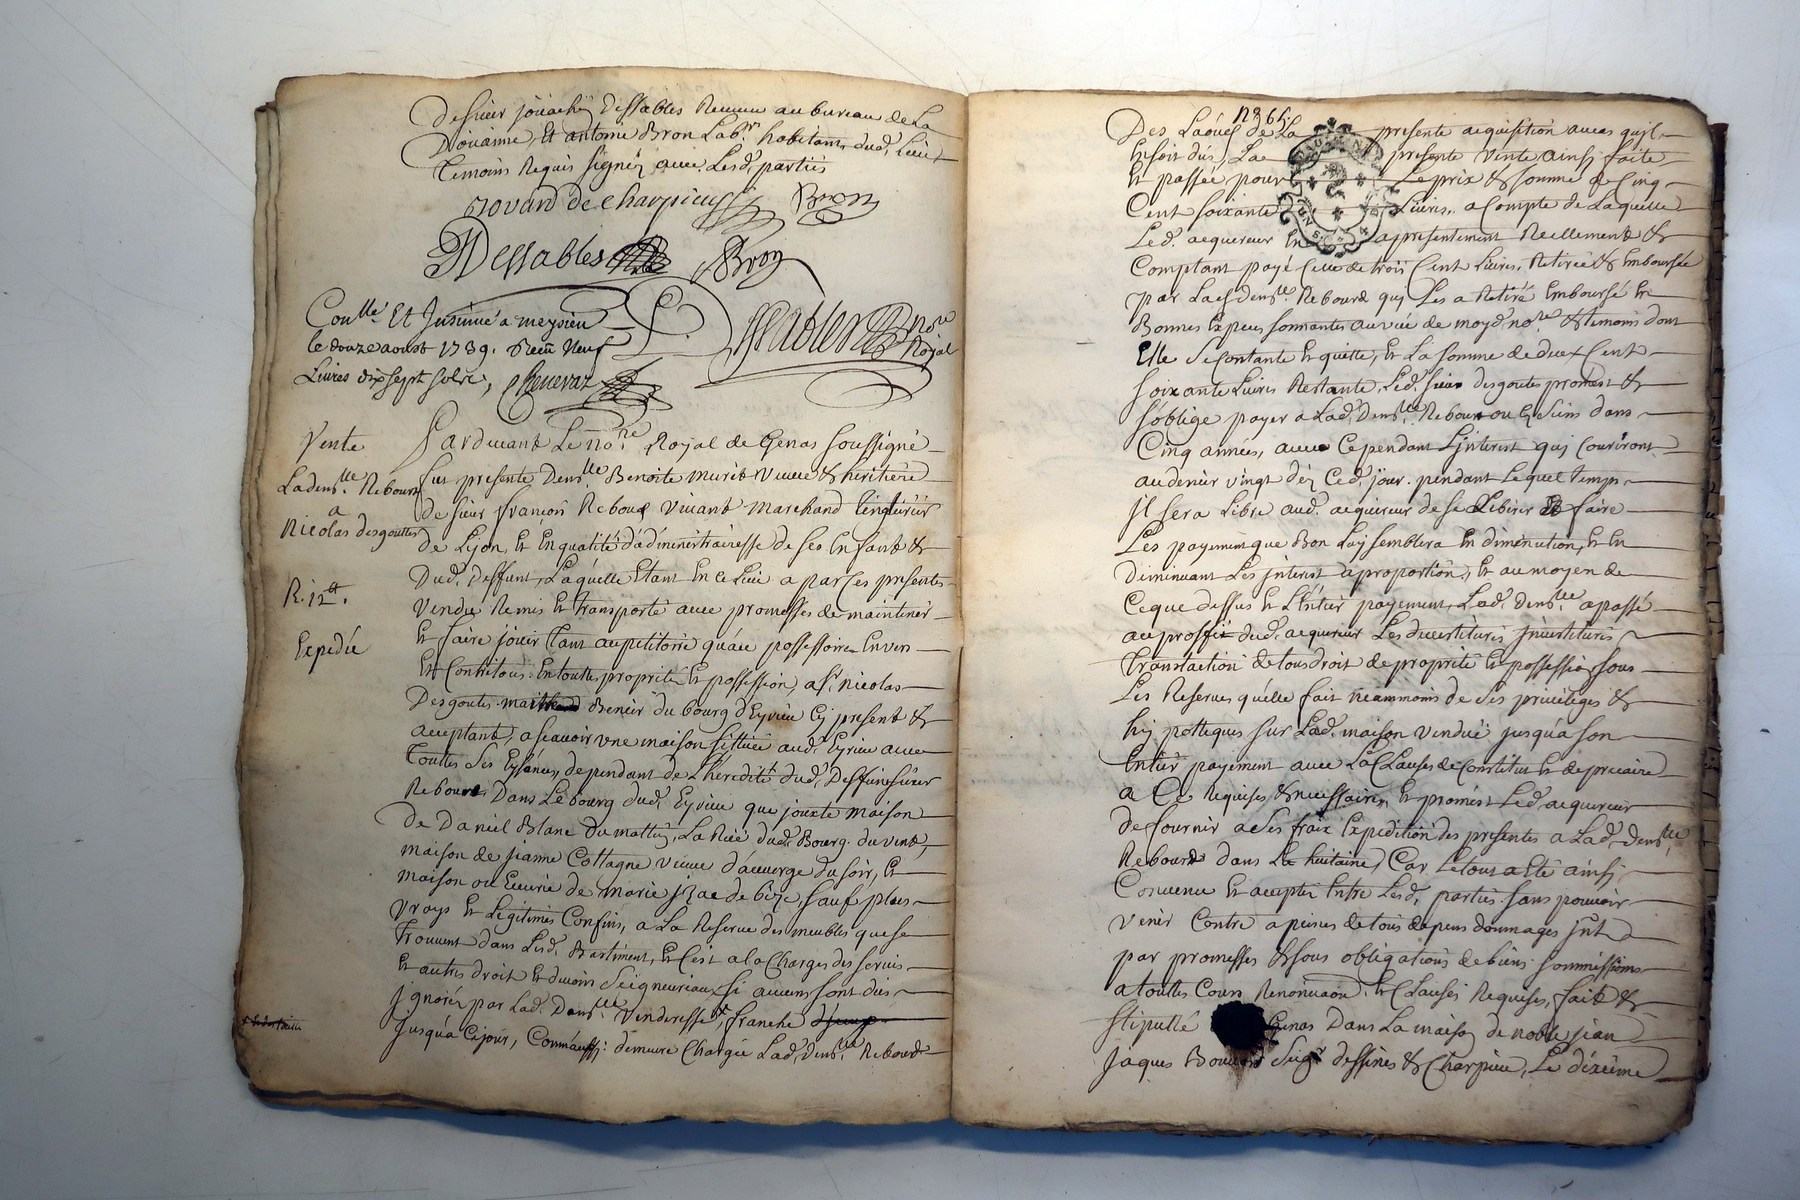 de sieur joüachin Dessables Receveur au bureau de La
Doüanne, Et antoine Bron Lab.r habitants dud. Lieu
Temoins Requis signéz avec Lesd. parties
Bovard de Charpieu Bron
Dessables Bron
Con.llé Et Insinué a meysieu
le douze aoust 1739. Receu Neuf
Livres dix sept sols,
Dessables no.re Royal
Vente
La dem.lle Rebourd
a
Nicolas desgouttes
R. 12 tt.
Expedié
Pardevant Le no.re Royal de Genas soussigné
fut presente Dem.lle Benoite Muret veuve & heritiere
de sieur françois Rebourd vivant marchand Teinturier
de Lyon, Et En qualité d'administrairesse de ses Enfants &
Dud. Deffunt, Laquelle Etant En ce Lieu a par ces presentes
Vendu Remis Et transporté avec promesses de maintenir
Et faire joüir Tant au petitoire qu'au possessoire Envers
Et Contre tous. En toutte proprieté Et possession, a s.r nicolas
Desgoutes du bourg d'Eyrieu Cy present &
acceptant, a scavoir une maison sittuée aud. Eyrieu avec
Touttes ses Eysances, dependant de L'heredité dud. Deffunt sieur
Rebourd Dans Le bourg dud. Eyrieu que jouxte maison
De Daniel Blanc du mattin, La Rüe dud. Bourg du vent,
maison de jeanne Cottagne veuve d'auverge du soir, Et
maison ou Ecurie de marie de bize sauf plus
Vrays Et Legitimes Confins, a La Reserve des meubles que se
Trouvent dans Lesd. Bastiment, Et C'est a la Charges des servis
Et autres droit Et devoirs Seigneuriaux si aucuns sont dus
Ignorés par Lad. Dem.lle Venderesse, franche
Jusqu'a Ce jour, Comm'aussy demeure Chargée Lad. Dem.lle Rebourd
N 365
Des Laoués de La presente acquisition au cas qu'jl
En soit dus, La presente vente ainsy faite
Et passée pour Le prix & somme de Cinq
Cent soixante Livres, a Compte de Laquelle
Led. acquereur En a presentement Reellement &
Comptant payé Celle de trois Cent Livres, Retirée & Emboursée
par Lad. dem.lle Rebourd quj Les a Retiré Emboursé En
Bonnes Especes sonnantes au vue de moyd. no.re & temoins dont
Elle se Contante Et quitte, Et La somme de deux Cent
soixante Livres Restante, Led. sieur desgoutes promest &
s'oblige payer a Lad. Dem.lle Rebourd ou Es siens dans
Cinq années, avec Cependant L'jnterest quj Couriront
au denier vingt déz Ced. jour. pendant Lequel Temps
Jl sera Libre aud. acquereur de se Liberer & faire
Les payement que Bon Luy semblera En diminution, Et En
Diminuant Les jnterest a proportion, Et au moyen de
Ceque dessus Et L'Entier payement, Lad. dem.lle a passé
au proffit dud. acquereur Les devestitures jnvestitures
Translaction de tous droit de proprieté Et possession, sous
Les Reserves qu'elle fait neammoins de ses privileges &
hypotteques sur Lad. maison vendüe jusqu'a son
Entier payement avec La Clauses de Constitut Et de precaire
a Ce Requises & necessaires, Et promest Led. acquereur
de fournir a ses fraix Expedition des presentes a Lad. Dem.lle
Rebourd dans La huitaine, Car Le tout a Eté ainsi
Convenu Et accepté Entre Lesd. parties sans pouvoir
venir Contre a peines de tous depens dommages jnt
par promesses & sous obligations de biens sommissions
a touttes Cours Renonciaon. Et Clauses Requises, fait &
stipullé Genas Dans La maison de noble jean
Jaques Bouvard Seig.r dessines & Charpieu, Le dixieme